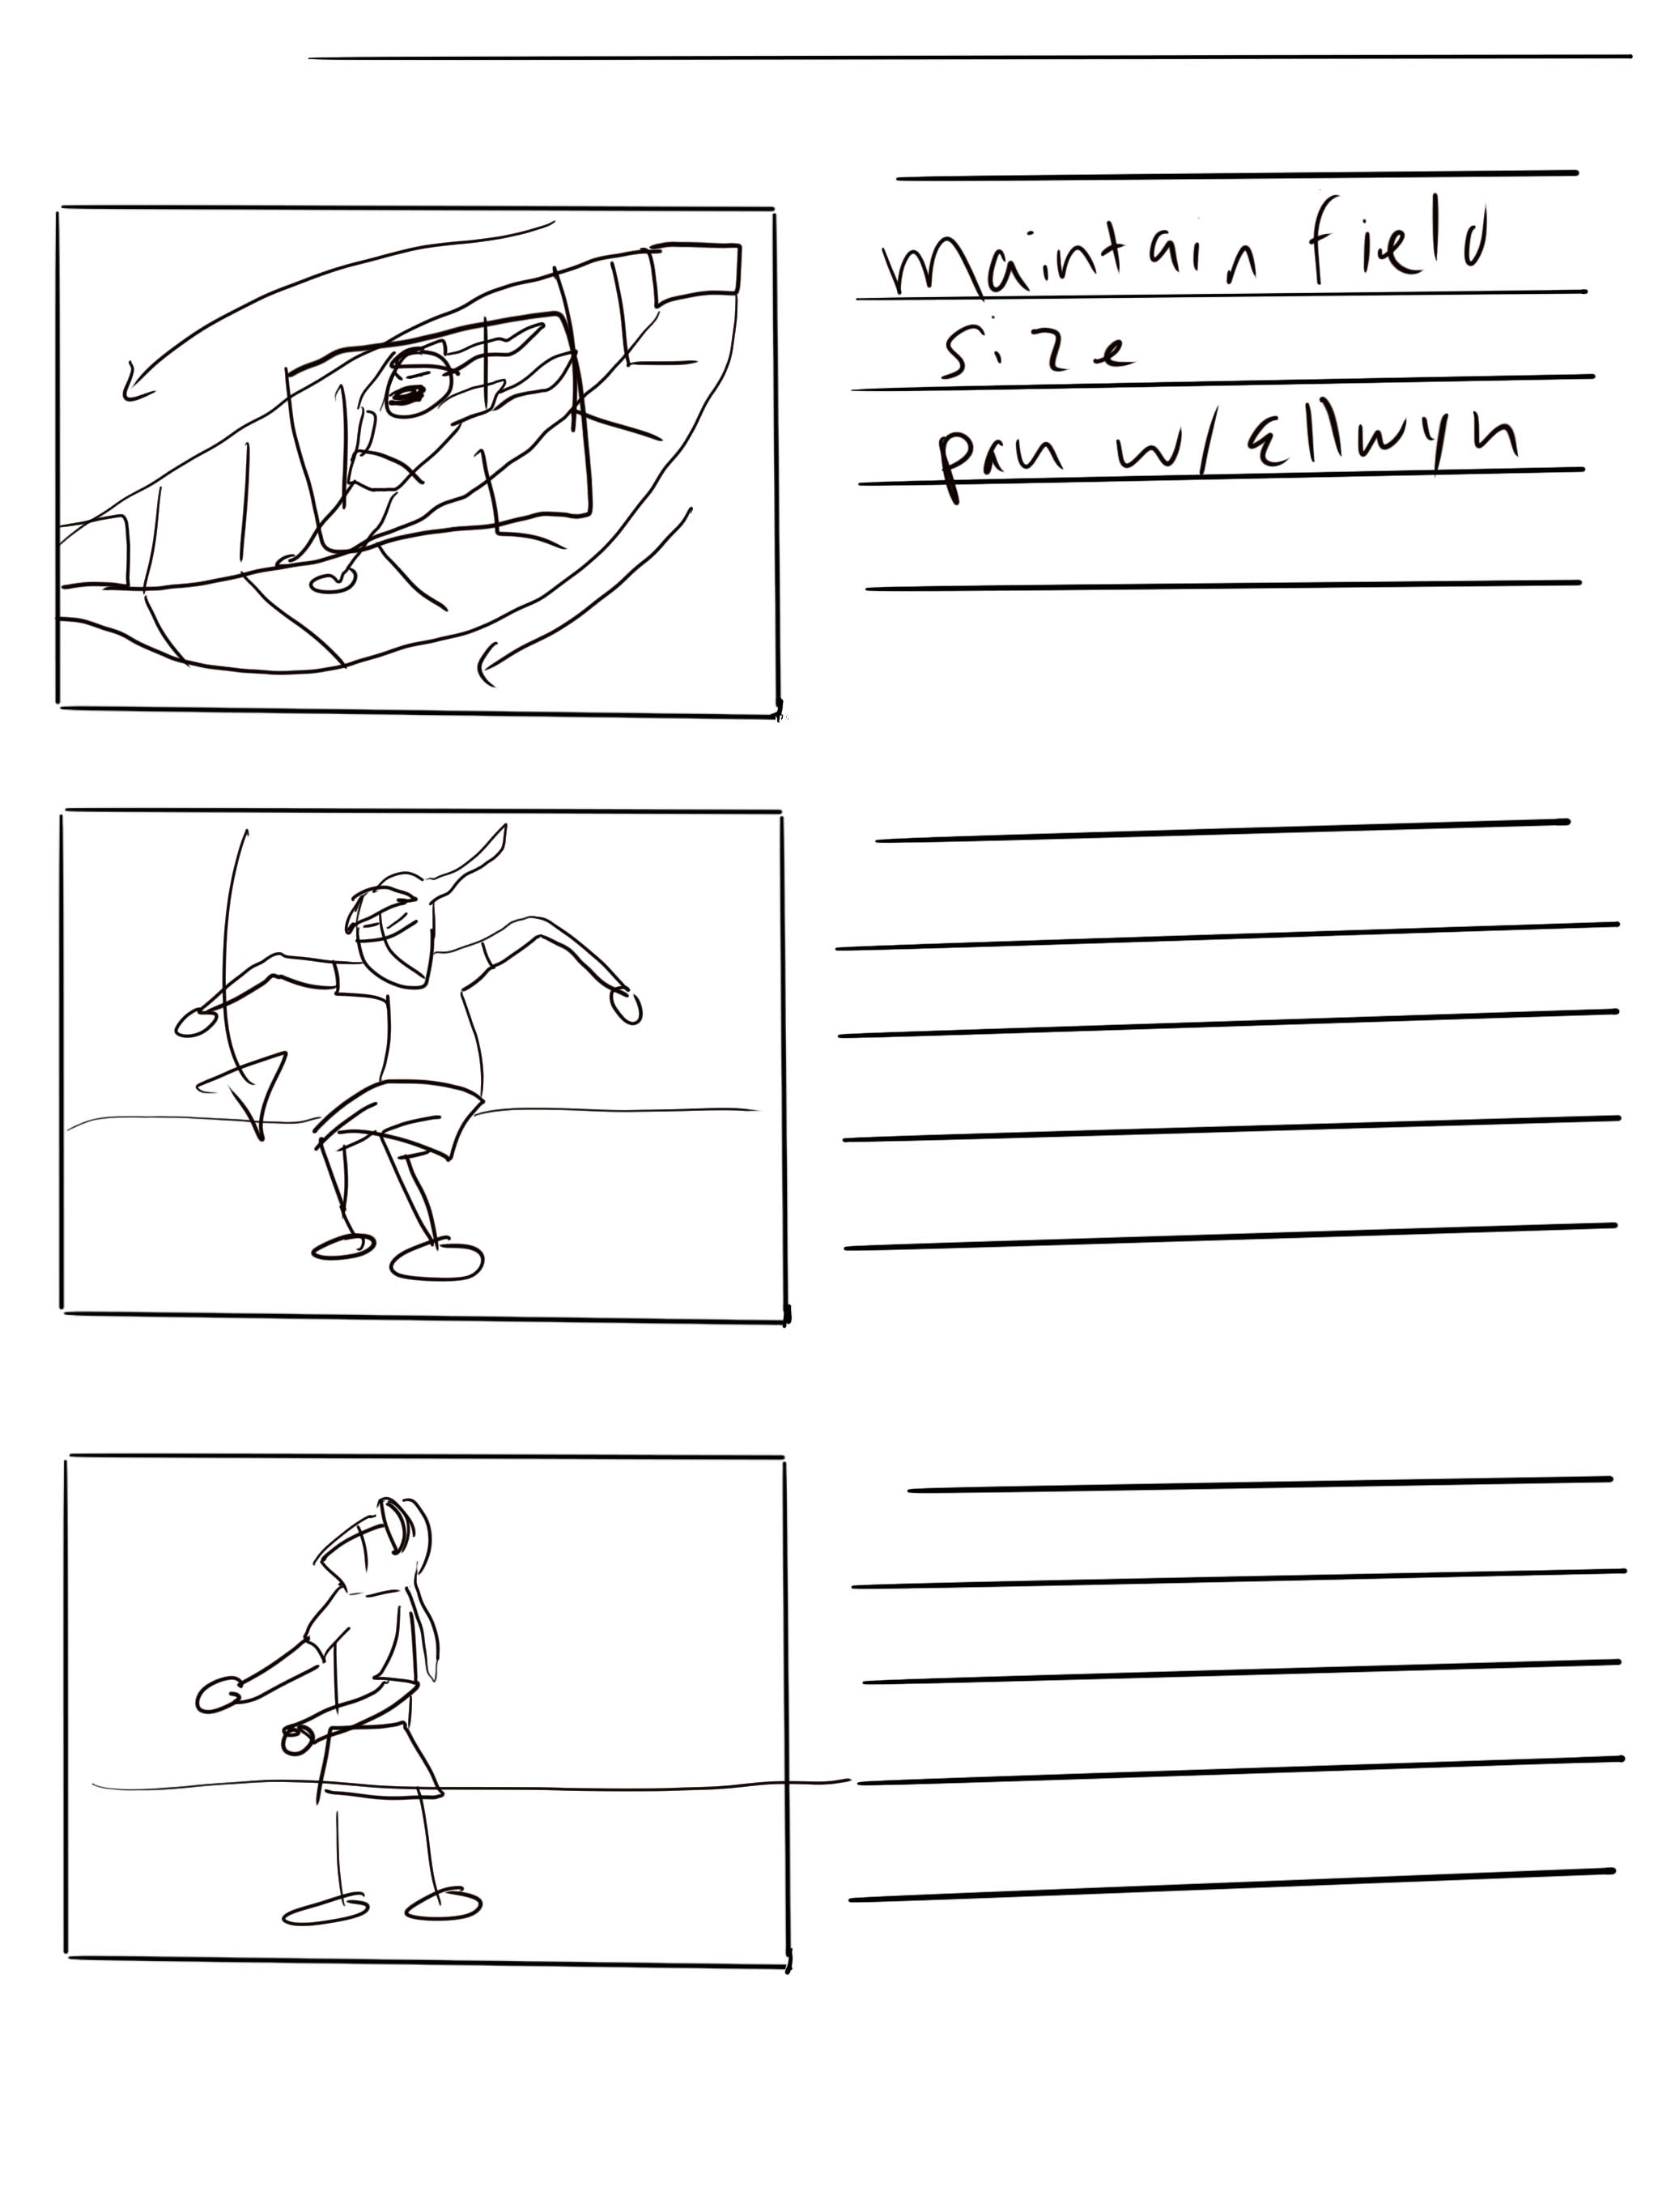 Maintain field
size
Pan w/ Ellwyn